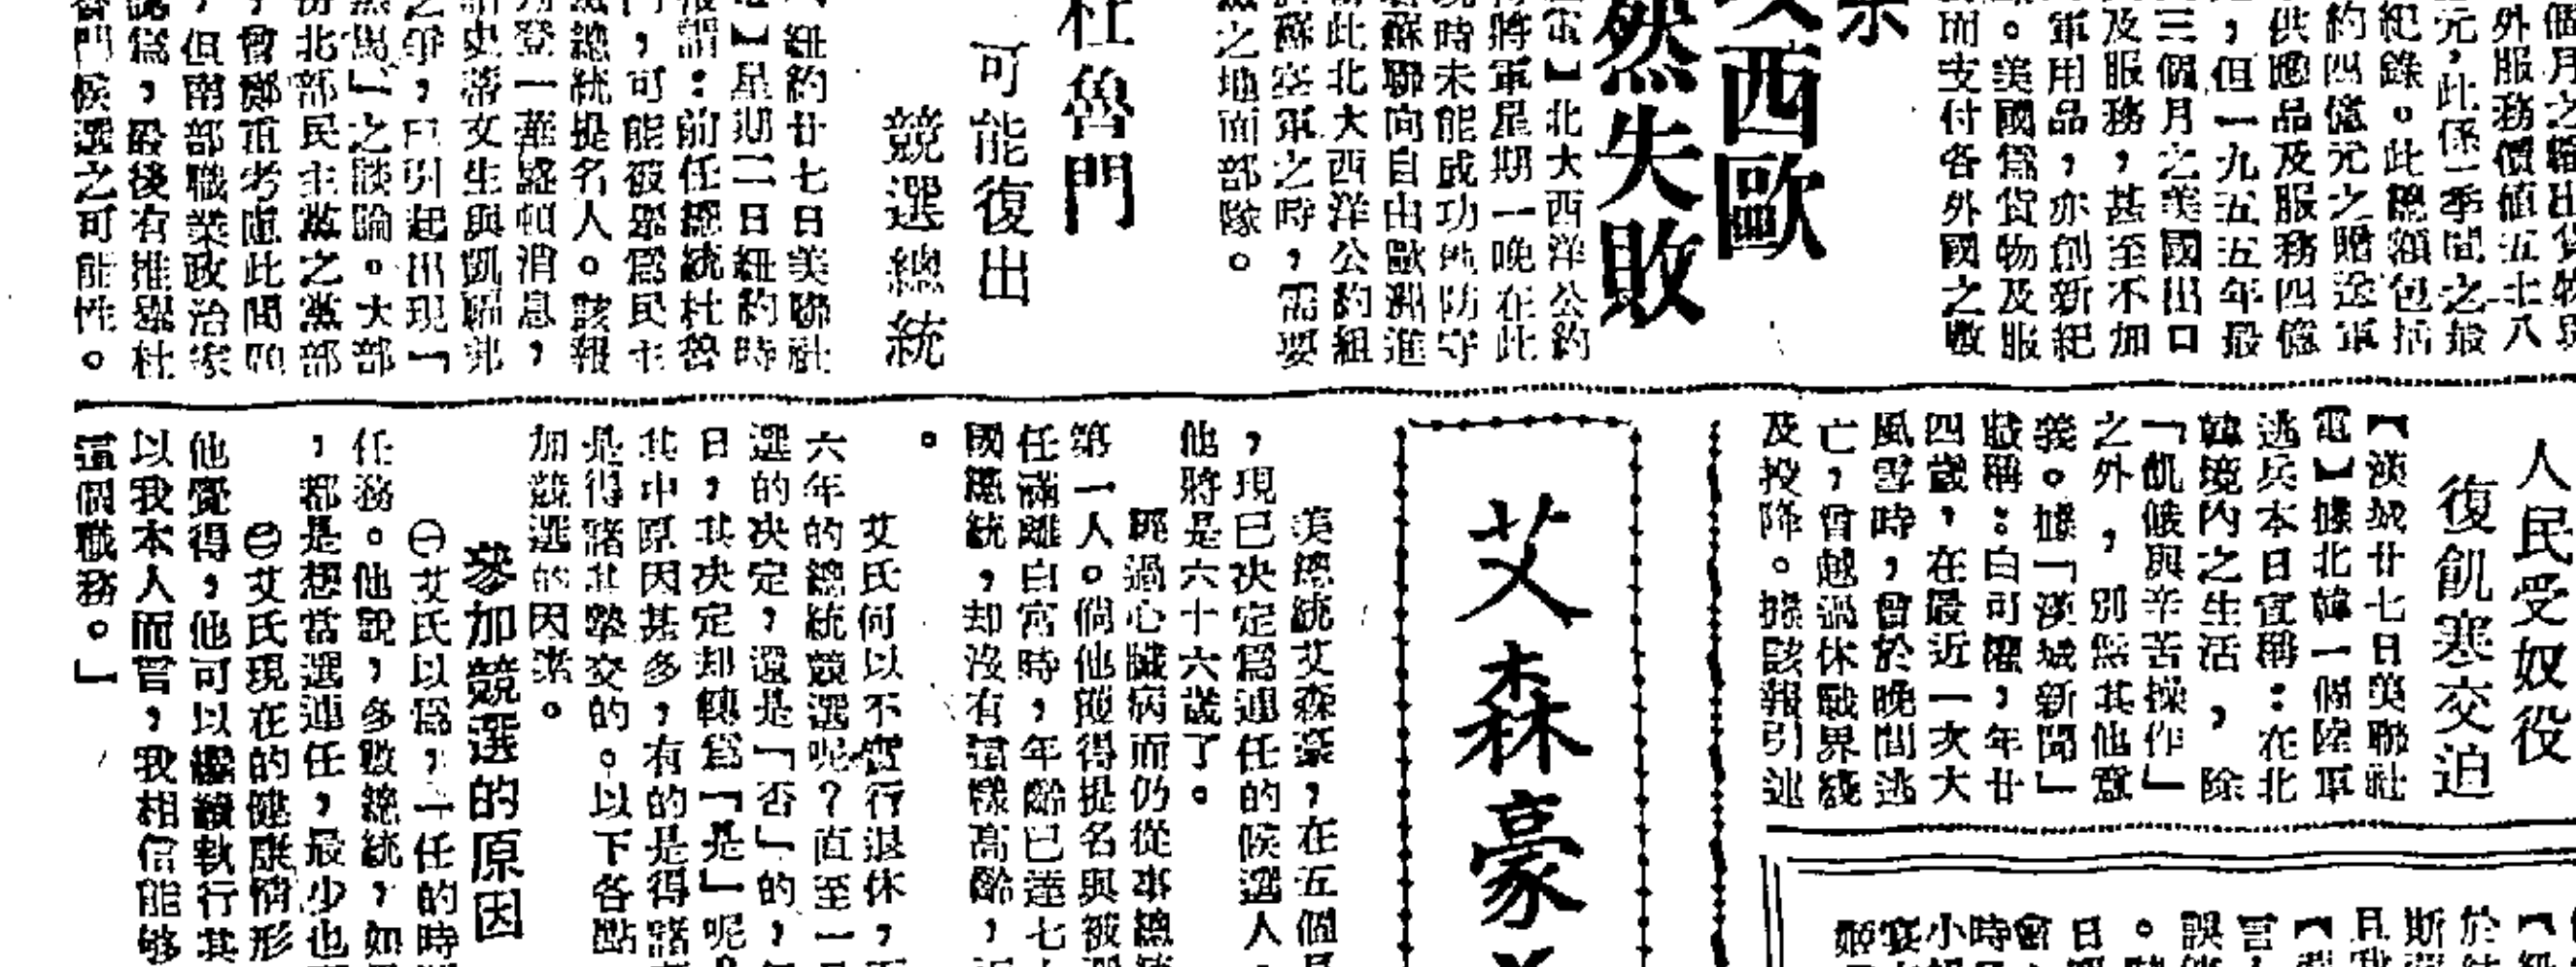 個月之輸出貨物與
外服務價值五十八
元，此係一季間之最
紀錄。此總額包括
約四億元之贈送軍
供應品及服務四億
，但一九五五年最
三個月之美國出口
及服務，甚至不加
軍用品，亦創新紀
。美國爲貨物及服
而支付各外國之數
示
西歐
然失敗
電】北大西洋公約
將軍星期一晚在此
現時未能成功地防守
蘇聯向自由歐洲進
此北大西洋公約組
軍之時，需要
之地面部隊。
杜魯門
可能復出
競選總統
紐約廿七日美聯社
】星期二日紐約時
報謂：前任總統杜魯
門，可能被舉爲民主
黨總統提名人。該報
登一華盛頓消息，
史蒂文生與凱福弗
之爭，已引起出現「
黑馬」之談論。大部
份北部民主黨之黨部
，曾鄭重考慮此問題
，但南部職業政治家
認爲，最後有推舉杜
魯門候選之可能性。
人民受奴役
復飢寒交迫
【漢城廿七日美聯社
電】據北韓一個陸軍
逃兵本日宣稱：在北
韓境內之生活，除
「飢餓與辛苦操作」
之外，別無其他意
義。據「漢城新聞」
戴稱：白可權，年廿
四歲，在最近一次大
風雪時，曾於晚間逃
亡，曾越過休戰界綫
及投降。據該報引述
於
斯
且我
【
言
誤
。
日
會
時
小
宴
姬
艾森豪
美總統艾森豪，在五個月
，現已決定爲連任的候選人，
他將是六十六歲了。
經過心臟病而仍從事總統
第一人。倘他獲得提名與被選
任滿離白宮時，年齡已達七十
國總統，却沒有這樣高齡，
。
艾氏何以不實行退休，
六年的總統競選呢？直至一月
選的決定，還是「否」的，
日，其決定却轉爲「是」呢。
其中原因甚多，有的是得諸
是得諸其摯交的。以下各點
加競選的因素。
參加競選的原因
㊀艾氏以爲，一任的時
任務。他說，多數總統，如
，都是想當選連任，最少也
㊁艾氏現在的健康情形
他覺得，他可以繼續執行其
以我本人而言，我相信能够
這個職務。」